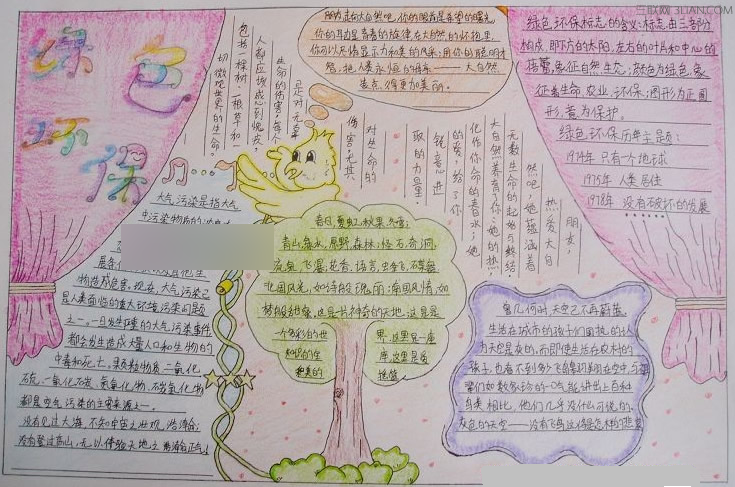 三联网 3LIAN.COM
绿色
环保
朋友走向大自然吧,你的眼前是希望的曙光
你的耳边是青春的旋律,在大自然的怀抱里,
你可以尽情显示力和美的风采;用你的聪明才
智,把人类永恒的母亲——大自然
装点得更加美丽。
绿色环保标志的含义:标志由三部分
构成,即下方的太阳,左右的叶片和中心的
蓓蕾,象征自然生态;颜色为绿色,象
征着生命,农业,环保;图形为正圆
形,意为保护。
绿色环保历年主题:
1974年 只有一个地球
1975年 人类居住
1978年 没有破坏的发展
朋友,
热爱大自
然吧,她蕴涵着
无数生命的起始与终结,
大自然养育了你;她的热
化作你生命的春水;她
的爱,给了你
锐意进
取的力量。
对生命的
伤害,尤其
是对元辜
生命的伤害,每个
人都应该感到愧疚,
包括一棵树,一根草和一
切微观世界的生命。
大气污染是指大气
中污染物质的浓度
物造成危害。现在,大气污染已
是人类面临的重大环境污染问题
之一。一旦发生严重的大气污染事件
都会发生造成大量人口和生物的
中毒和死亡。颗粒物质,二氧化
硫,一氧化碳,氮氧化物,碳氢化物
都是空气污染的主要来源之一。
没有见过大海,不知宇宙之壮观,浩瀚;
没有登过高山,无以体验天地之
春日,夏虹,秋果,冬雪;
青山,海水,原野,森林,怪石,奇洞,
流泉,飞瀑,花香,语言,虫争飞,石
北国风光,如诗般瑰丽;南国风情,如
梦般甜蜜,这是一片神奇的天地,这是是
一个多彩的世
界,这里是一座
知识的宝
库,这里是爱
和美的
摇篮。
曾几何时,天空已不再蔚蓝,
生活在城市的孩子们固执的认
为天空是灰的,而即使生活在农村的
孩子,也看不到多少飞鸟翱翔在空中,与
长辈们如数家珍的一口气能讲出上百种
鸟类相比,他们几乎没什么可说的,
灰色的天空——没有飞鸟,这将是怎样的悲哀